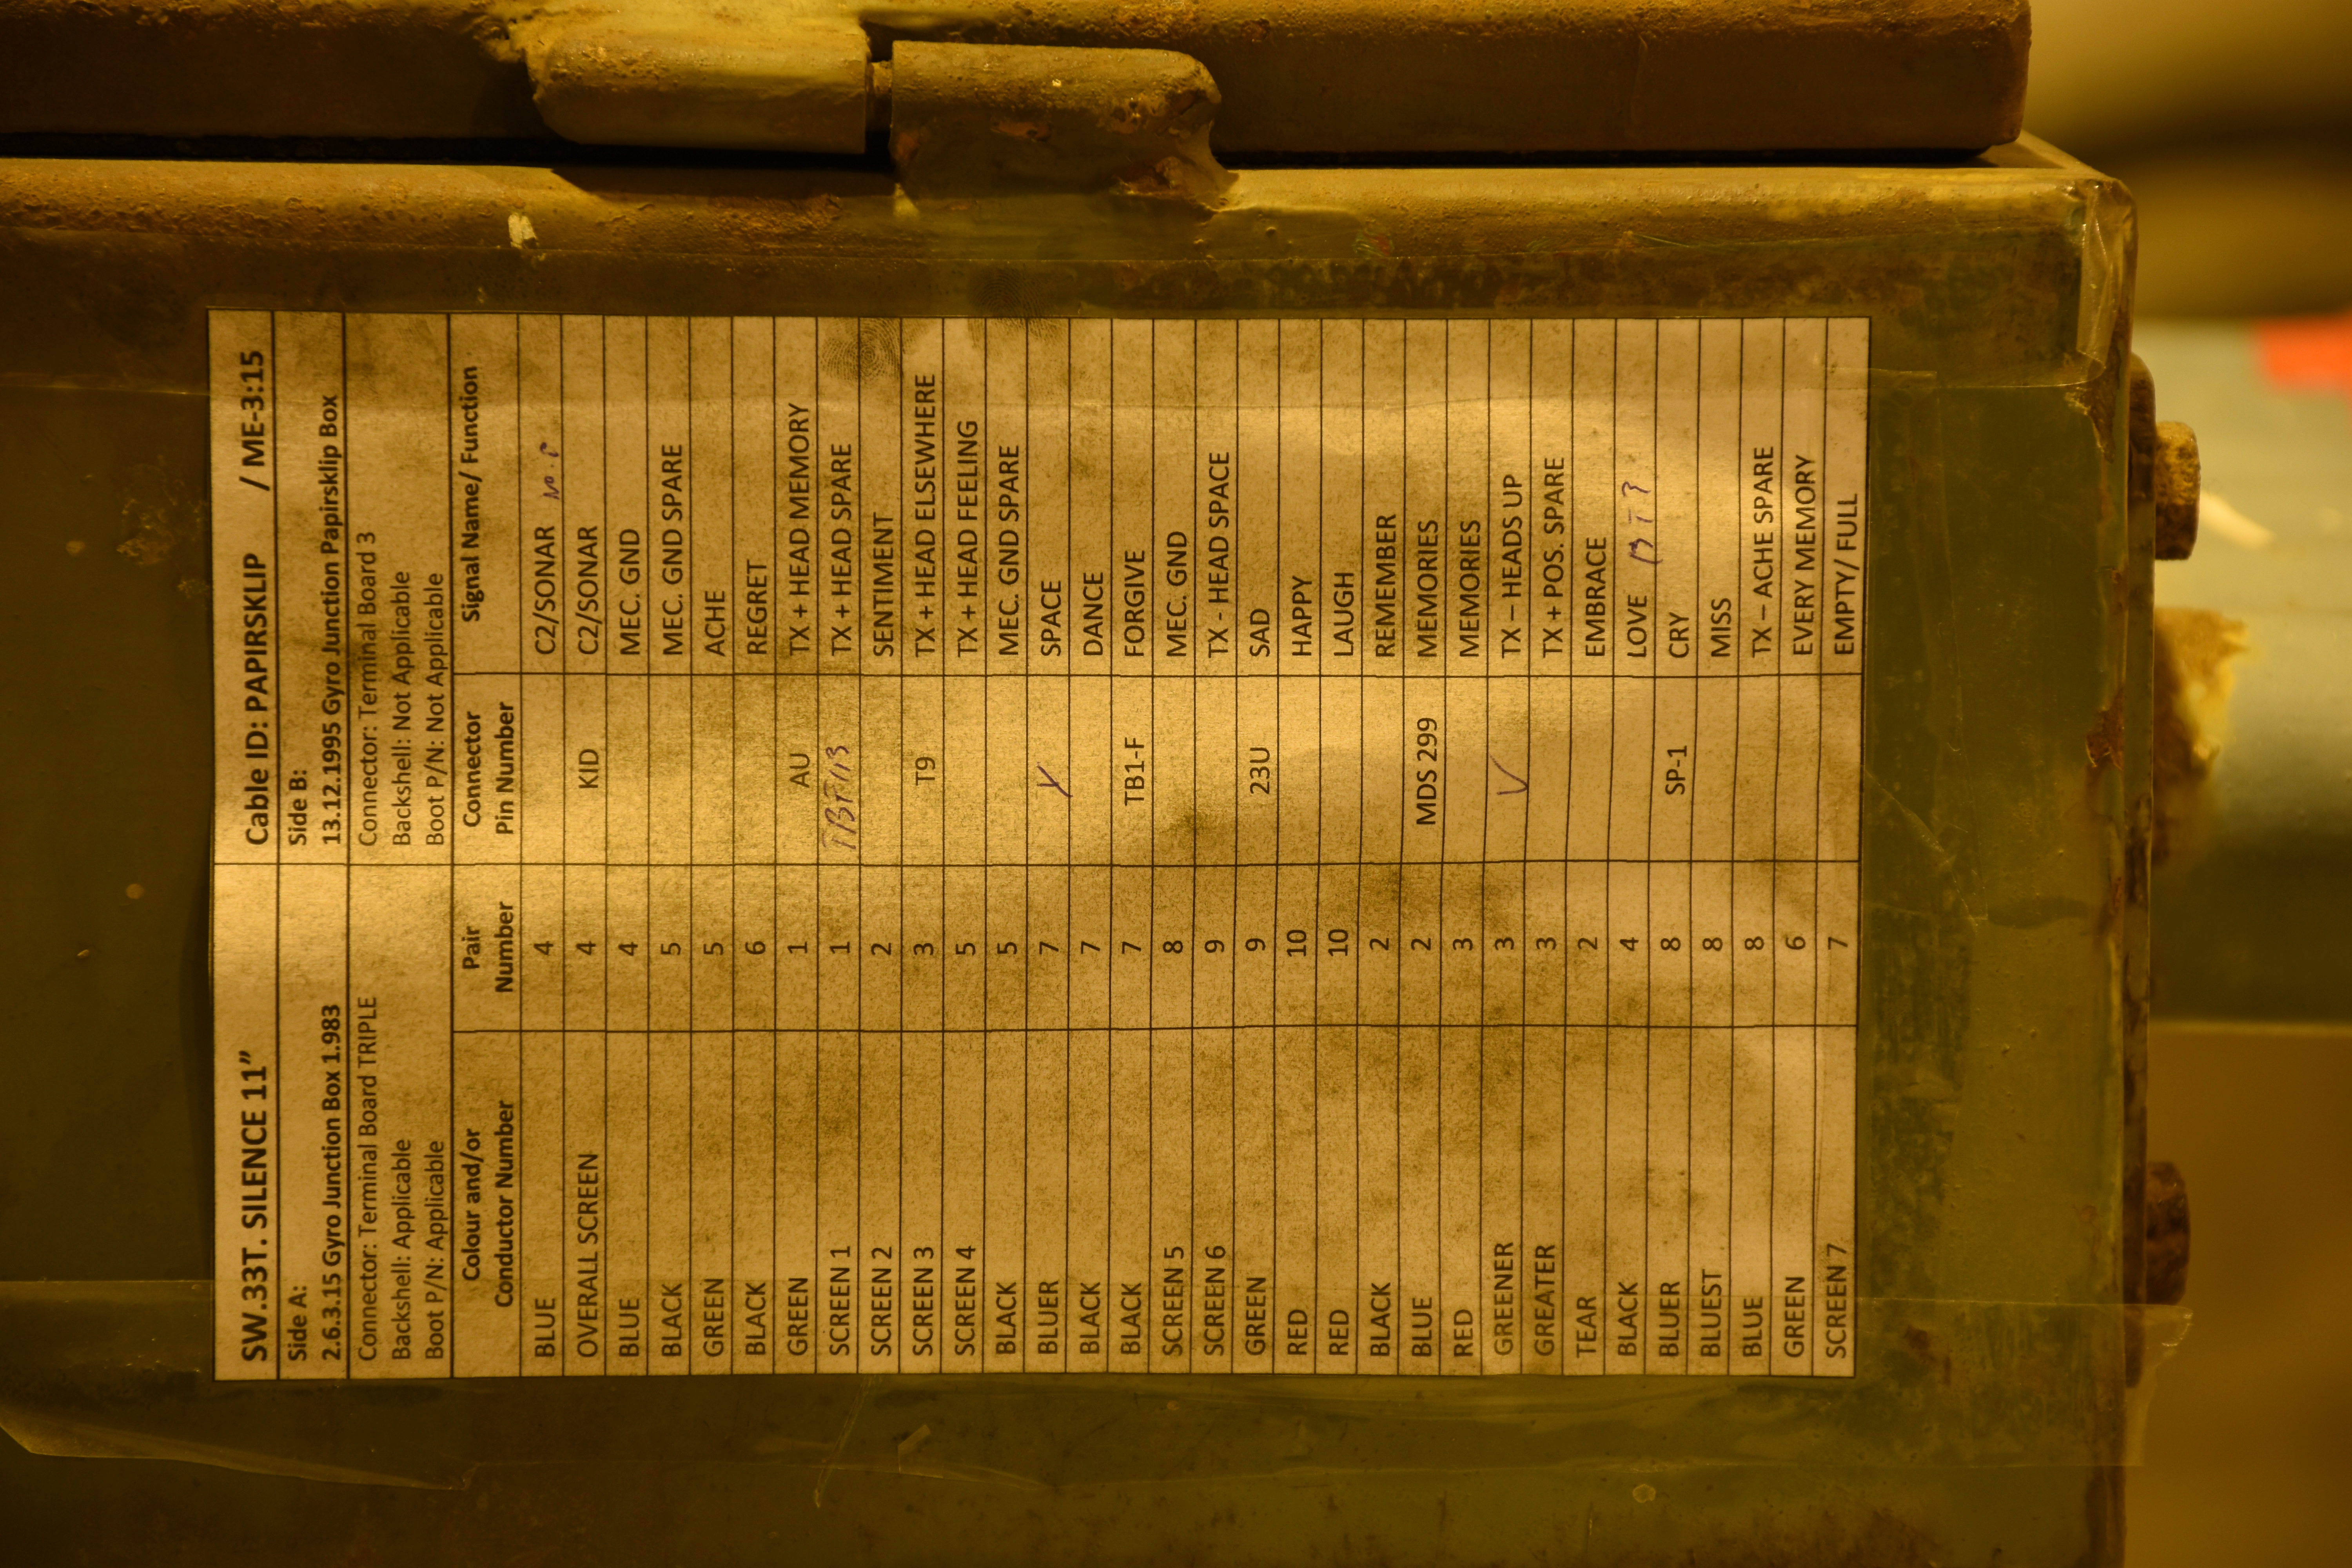 SW.33T. SILENCE 11” Cable ID: PAPIRSKLIP / ME-3:15
Side A: Side B:
2.6.3.15 Gyro Junction Box 1.983 13.12.1995 Gyro Junction Papirsklip Box
Connector: Terminal Board TRIPLE Connector: Terminal Board 3
Backshell: Applicable Backshell: Not Applicable
Boot P/N: Applicable Boot P/N: Not Applicable
Colour and/or Pair Connector Signal Name/ Function
Conductor Number Number Pin Number
BLUE 4 C2/SONAR No.P
OVERALL SCREEN 4 KID C2/SONAR
BLUE 4 MEC. GND
BLACK 5 MEC. GND SPARE
GREEN 5 ACHE
BLACK 6 REGRET
GREEN 1 AU TX + HEAD MEMORY
SCREEN 1 1 TX + HEAD SPARE
SCREEN 2 2 SENTIMENT
SCREEN 3 3 T9 TX + HEAD ELSEWHERE
SCREEN 4 5 TX + HEAD FEELING
BLACK 5 MEC. GND SPARE
BLUER 7 SPACE
BLACK 7 DANCE
BLACK 7 TB1-F FORGIVE
SCREEN 5 8 MEC. GND
SCREEN 6 9 TX - HEAD SPACE
GREEN 9 23U SAD
RED 10 HAPPY
RED 10 LAUGH
BLACK 2 REMEMBER
BLUE 2 MDS 299 MEMORIES
RED 3 MEMORIES
GREENER 3 TX – HEADS UP
GREATER 3 TX + POS. SPARE
TEAR 2 EMBRACE
BLACK 4 LOVE BT?
BLUER 8 SP-1 CRY
BLUEST 8 MISS
BLUE 8 TX – ACHE SPARE
GREEN 6 EVERY MEMORY
SCREEN 7 7 EMPTY/ FULL